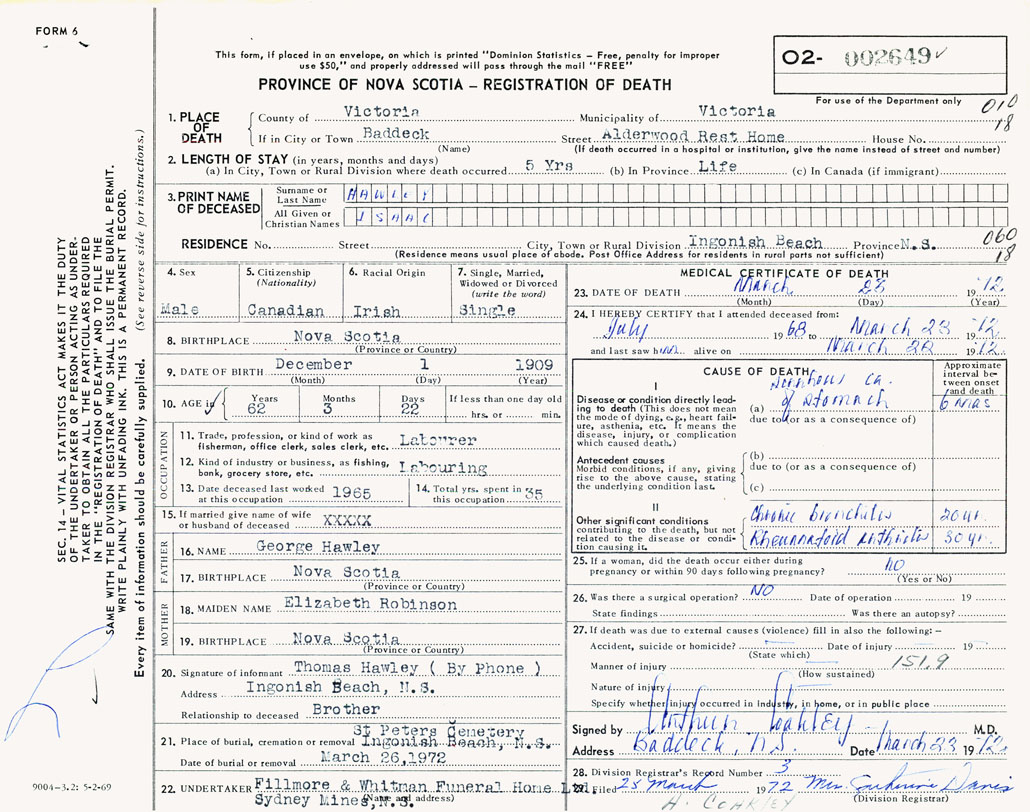 FORM 6
This form, if placed in an envelope, on which is printed "Dominion Statistics – Free, penalty for improper
use $50," and properly addressed will pass through the mail "FREE"
O2- 002649
For use of the Department only
PROVINCE OF NOVA SCOTIA – REGISTRATION OF DEATH
010
18
1. PLACE OF DEATH
County of Victoria Municipality of Victoria
If in City or Town Baddeck Street Alderwood Rest Home House No.
(Name) (If death occurred in a hospital or institution, give the name instead of street and number)
2. LENGTH OF STAY (in years, months and days)
(a) In City, Town or Rural Division where death occurred 5 Yrs (b) In Province Life (c) In Canada (if immigrant)
3. PRINT NAME OF DECEASED
Surname or Last Name HAWLEY
All Given or Christian Names ISAAC
RESIDENCE No. Street City, Town or Rural Division Ingonish Beach Province N.S.
(Residence means usual place of abode. Post Office Address for residents in rural parts not sufficient)
060
18
4. Sex
Male
5. Citizenship
(Nationality)
Canadian
6. Racial Origin
Irish
7. Single, Married,
Widowed or Divorced
(write the word)
Single
8. BIRTHPLACE Nova Scotia
(Province or Country)
9. DATE OF BIRTH December 1 1909
(Month) (Day) (Year)
10. AGE in Years Months Days If less than one day old
62 3 22 hrs. or min.
OCCUPATION
11. Trade, profession, or kind of work as
fisherman, office clerk, sales clerk, etc. Labourer
12. Kind of industry or business, as fishing,
bank, grocery store, etc. Labouring
13. Date deceased last worked
at this occupation 1965
14. Total yrs. spent in
this occupation 35
15. If married give name of wife
or husband of deceased XXXXX
FATHER
16. NAME George Hawley
17. BIRTHPLACE Nova Scotia
(Province or Country)
MOTHER
18. MAIDEN NAME Elizabeth Robinson
19. BIRTHPLACE Nova Scotia
(Province or Country)
20. Signature of informant Thomas Hawley ( By Phone )
Address Ingonish Beach, N.S.
Relationship to deceased Brother
St Peters Cemetery
21. Place of burial, cremation or removal Ingonish Beach, N.S.
Date of burial or removal March 26,1972
22. UNDERTAKER Fillmore & Whitman Funeral Home Ltd.,
Sydney Mines, N.S.
(Name and address)
MEDICAL CERTIFICATE OF DEATH
23. DATE OF DEATH March 19 72
(Month) (Day) (Year)
24. I HEREBY CERTIFY that I attended deceased from:
July 1968 to March 23 1972
and last saw him alive on March 1972
CAUSE OF DEATH
Approximate
interval be-
tween onset
and death
I
Disease or condition directly lead-
ing to death (This does not mean
the mode of dying, e.g., heart fail-
ure, asthenia, etc. It means the
disease, injury, or complication
which caused death.)
(a) Ca.
of Stomach 6 mos
due to (or as a consequence of)
Antecedent causes
Morbid conditions, if any, giving
rise to the above cause, stating
the underlying condition last.
(b)
due to (or as a consequence of)
(c)
II
Other significant conditions
contributing to the death, but not
related to the disease or condi-
tion causing it.
Chronic bronchitis 20 yr.
Rheumatoid arthritis 30 yr.
25. If a woman, did the death occur either during
pregnancy or within 90 days following pregnancy? NO
(Yes or No)
26. Was there a surgical operation? NO Date of operation 19
State findings Was there an autopsy?
27. If death was due to external causes (violence) fill in also the following: –
Accident, suicide or homicide? Date of injury 19
(State which)
Manner of injury 151.9
(How sustained)
Nature of injury
Specify whether injury occurred in Industry, in home, or in public place
Signed by Arthur Coakley M.D.
Address Baddeck, N.S. Date March 23 1972
28. Division Registrar's Record Number 3
29. Filed 25 March 1972 Mrs. Davis
(Division Registrar)
A. COAKLEY
SEC. 14 – VITAL STATISTICS ACT MAKES IT THE DUTY
OF THE UNDERTAKER OR PERSON ACTING AS UNDER-
TAKER TO OBTAIN ALL THE PARTICULARS REQUIRED
IN THE "REGISTRATION OF DEATH" AND TO FILE THE
SAME WITH THE DIVISION REGISTRAR WHO SHALL ISSUE THE BURIAL PERMIT.
WRITE PLAINLY WITH UNFADING INK. THIS IS A PERMANENT RECORD.
Every item of information should be carefully supplied. (See reverse side for instructions.)
9004-3.2: 5-2-69